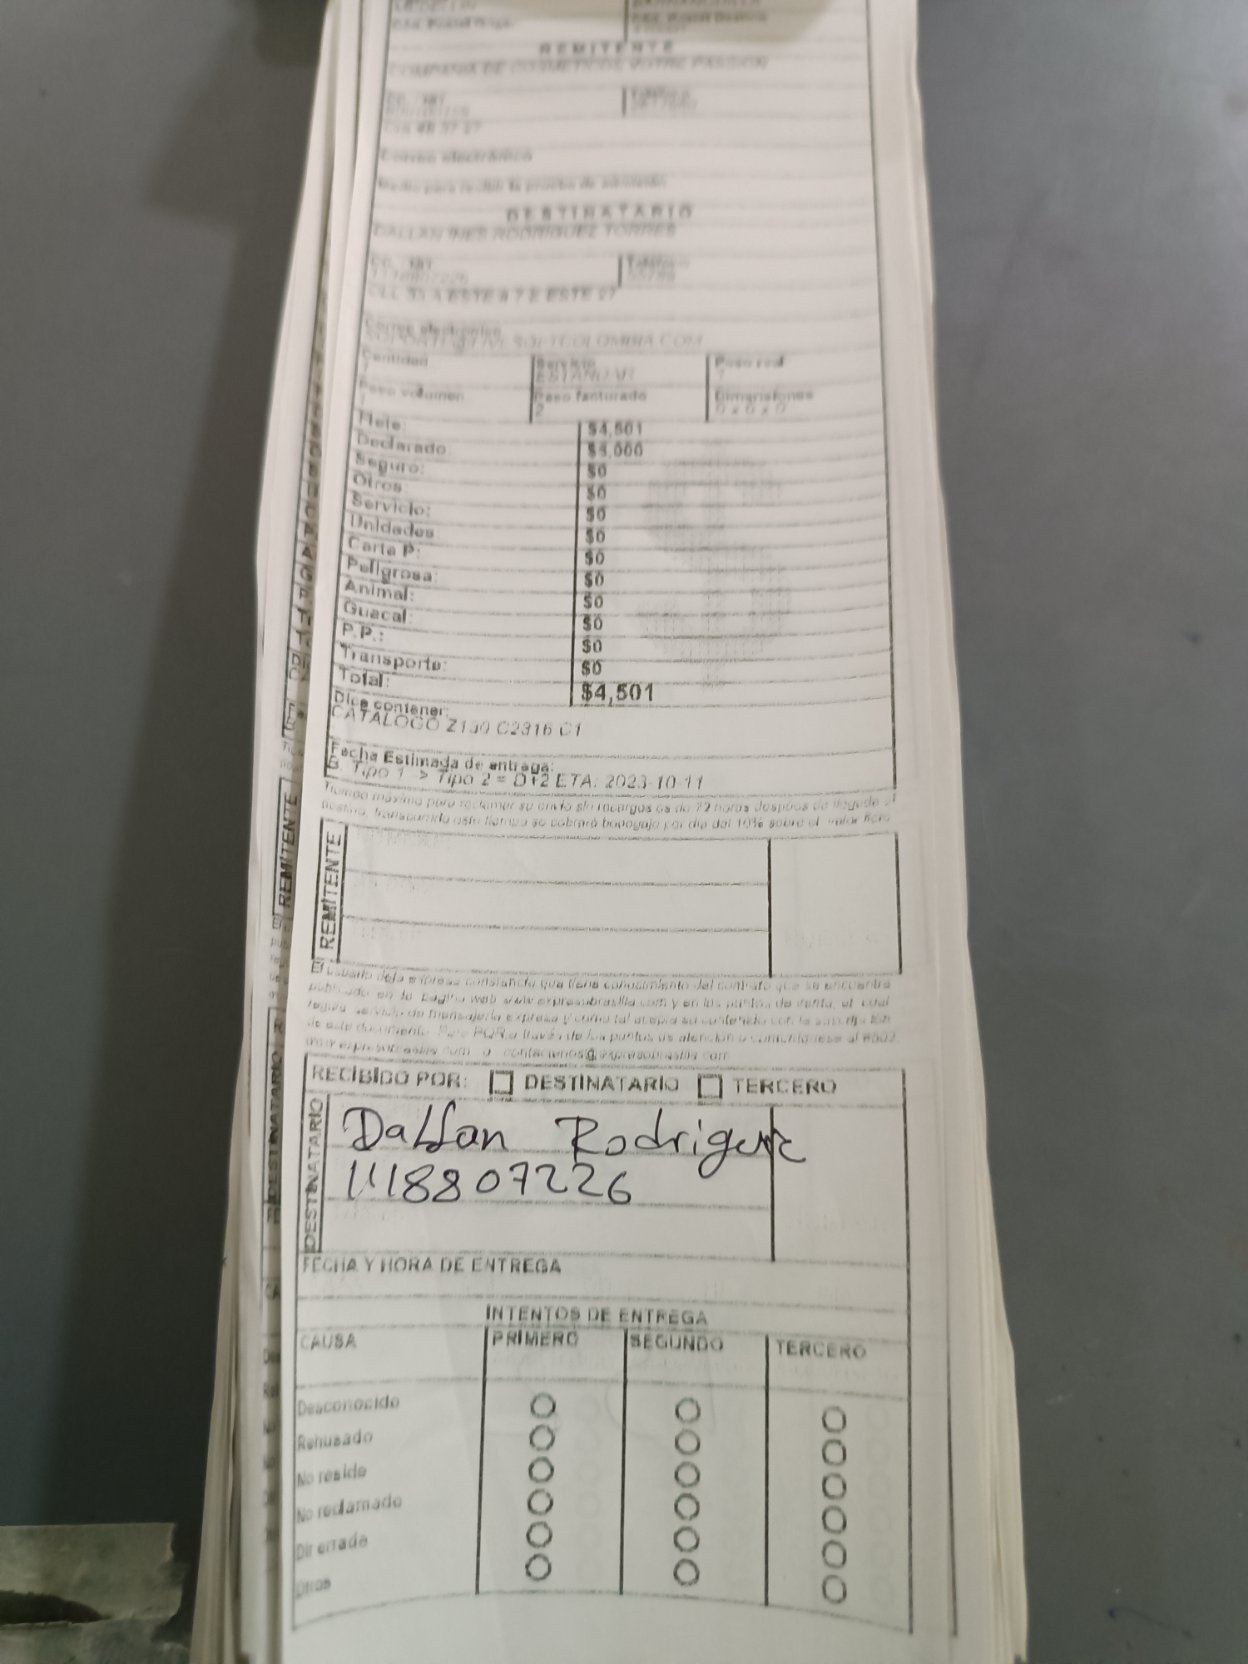 MEDELLIN
Cód. Postal Origen
Cód. Postal Destino
REMITENTE
COMPAÑIA DE COSMETICOS VOTRE PASSION
CC. NIT
Teléfono
Correo electrónico
Medio para recibir la prueba de admisión
DESTINATARIO
DALLAN INES RODRIGUEZ TORRES
CC. NIT
Teléfono
1118807226
CLL 35 A ESTE # 7 E ESTE 27
Correo electrónico
Cantidad
Servicio
Peso real
1
ESTANDAR
1
Peso volumen
Peso facturado
Dimensiones
1
2
0 x 0 x 0
Flete: $4,501
Declarado: $5,000
Seguro: $0
Otros $0
Servicio: $0
Unidades $0
Carta P: $0
Peligrosa: $0
Animal: $0
Guacal $0
P.P.: $0
Transporte: $0
Total: $4,501
Dice contener:
CATALOGO Z130 C2316 C1
Fecha Estimada de entrega:
Tipo 1 -> Tipo 2 = D+2 ETA: 2023-10-11
Tiempo máximo para reclamar su envío sin recargos es de 72 horas después de llegado a
destino, transcurrido este tiempo se cobrará bodegaje por día del 10% sobre el valor flete
REMITENTE
El usuario deja expresa constancia que tiene conocimiento del contrato que se encuentra
publicado en la pagina web www.expresobrasilia.com y en los puntos de venta, el cual
regula servicio de mensajería expresa y como tal acepta su contenido con la suscripción
de este documento. Para PQR a través de los puntos de atención o comuníquese al
RECIBIDO POR: DESTINATARIO TERCERO
DESTINATARIO
Dallan Rodriguez
1118807226
FECHA Y HORA DE ENTREGA
INTENTOS DE ENTREGA
CAUSA PRIMERO SEGUNDO TERCERO
Desconocido
Rehusado
No reside
No reclamado
Dir errada
Otros